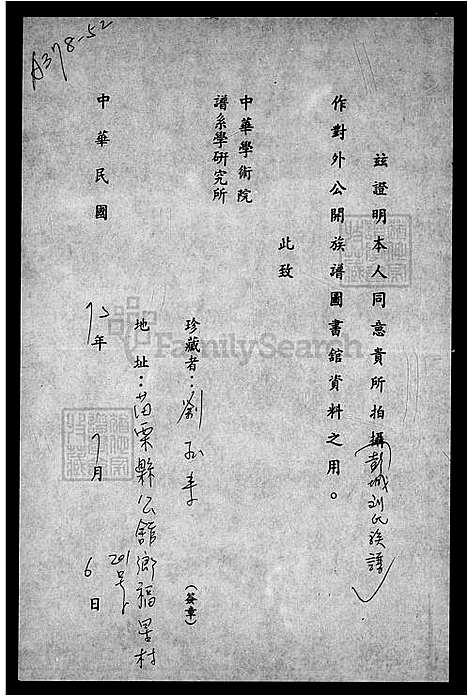 A378-52
茲證明本人同意貴所拍攝彭城刘氏族譜
作對外公開族譜圖書館資料之用。
此致
中華學術院
譜系學研究所
珍藏者:劉
(簽章)
地址:苗栗縣公館鄉福星村
201号
中華民國 年 7月 6日
FamilySearch